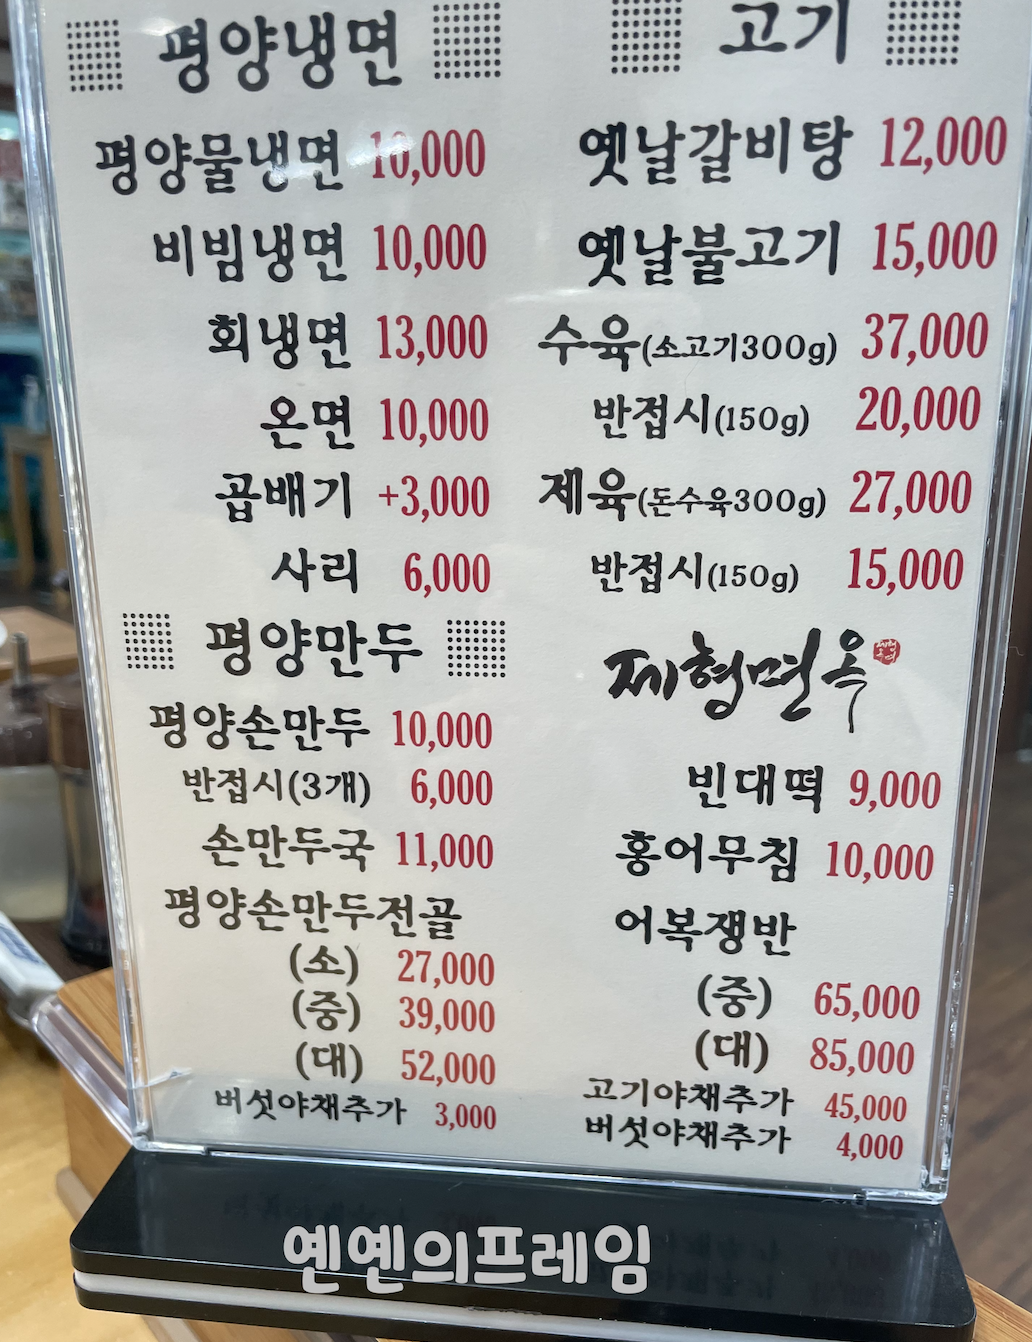 평양냉면
평양물냉면 10,000
비빔냉면 10,000
회냉면 13,000
온면 10,000
곱배기 +3,000
사리 6,000
평양만두
평양손만두 10,000
반접시(3개) 6,000
손만두국 11,000
평양손만두전골
(소) 27,000
(중) 39,000
(대) 52,000
버섯야채추가 3,000
고기
옛날갈비탕 12,000
옛날불고기 15,000
수육(소고기300g) 37,000
반접시(150g) 20,000
제육(돈수육300g) 27,000
반접시(150g) 15,000
제형면옥
빈대떡 9,000
홍어무침 10,000
어복쟁반
(중) 65,000
(대) 85,000
고기야채추가 45,000
버섯야채추가 4,000
옌옌의프레임